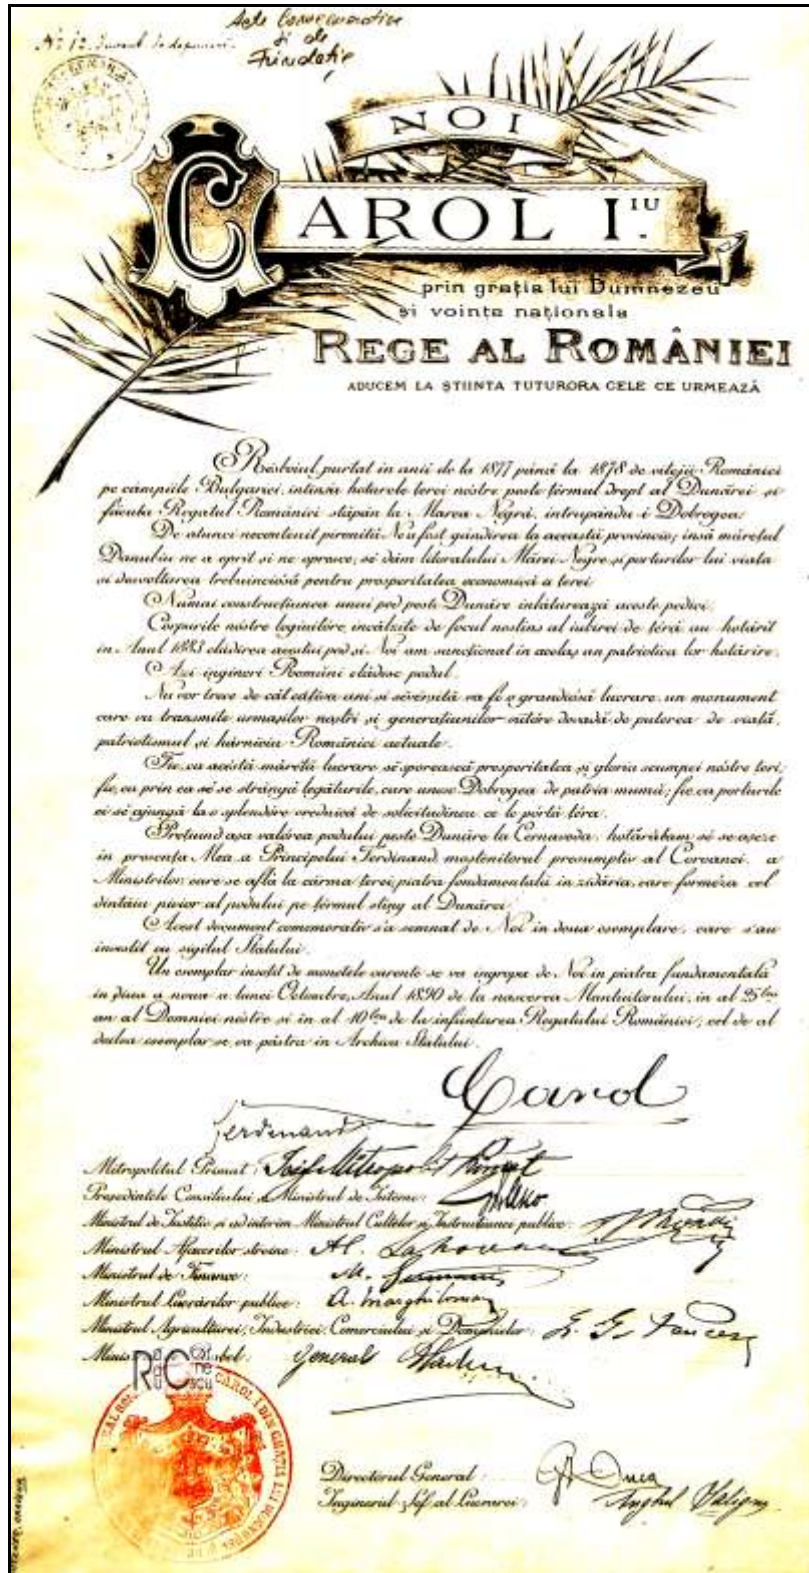 Acte Comemorative
și de
Fundație
No 12.
NOI
CAROL I IU
prin grația lui Dumnezeu
și vointa naționala
REGE AL ROMÂNIEI
ADUCEM LA ȘTIINTA TUTURORA CELE CE URMEAZĂ
Résboiul purtat in anii de la 1877 pănă la 1878 de vitejii României
pe câmpiile Bulgariei, intinsu hotarele terei nóstre peste țermul drept al Dunărei și
făcutu Regatul României stăpân la Marea Negră, intrupându-i Dobrogea.
De atunci necontenit pironită Ne a fost gândirea la această provincie; însă mărețul
Danubiu ne a oprit și ne opresce, să dăm litoralului Mărei Negre și porturilor lui viata
și desvoltarea trebuinciósă pentru prosperitatea economică a terei.
Numai construcțiunea unui pod peste Dunăre inlăturează aceste pedici.
Corpurile nóstre legiuitóre, incălzite de focul nestins al iubirei de téră au hotărît
in Anul 1883 clădirea acestui pod și Noi am sancționat in acelaș an patriotica lor hotărire.
Azi ingineri Români clădesc podul.
Nu vor trece de cât câtiva ani și séversită va fi o grandiósă lucrare, un monument
care va transmite urmașilor noștri și generațiunilor viitóre dovadă de puterea de viață,
patriotismul și hărnicia României actuale.
Fie, ca acéstă măréță lucrare să sporească prosperitatea și gloria scumpei nóstre teri;
fie, ca prin ea să se strângă legăturile, care unesc Dobrogea de patria mumă; fie, ca porturile
ei să ajungă la o splendóre vrednică de solicitudinea ce le pórtă téra.
Prețuind așa valórea podului peste Dunăre la Cernavoda, hotărâtam să se așeze
in presența Mea a Principelui Ferdinand moștenitorul presumptiv al Coroanei, a
Miniștrilor care se află la cârma terei, piatra fundamentală in zidăria, care formeza cel
dintâiu picior al podului pe țermul stâng al Dunărei.
Acest document comemorativ s'a semnat de Noi in doua esemplare, care s'au
investit cu sigilul Statului.
Un esemplar insoțit de monetele curente se va ingropa de Noi in piatra fundamentală
in diua a noua a lunei Octombre, Anul 1890 de la nascerea Mantuitorului, in al 25 lea
an al Domniei nóstre si in al 10 lea de la infiintarea Regatului României, cel de al
doilea esemplar se va păstra in Archiva Statului.
Carol
Ferdinand
Metropolitul Primat:
Președintele Consiliului și Ministrul de Interne:
Ministrul de Justitie si ad interim Ministrul Cultelor și Instructiunei publice:
Ministrul Afacerilor streine: Al. Lahovari
Ministrul de Finance: M. Germani
Ministrul Lucrărilor publice: A. Marghiloman
Ministrul Agriculturei, Industriei, Comerciului și Domeniilor:
General
Directorul General: G. Duca
Inginerul Șef al Lucrarei: Anghel Saligny